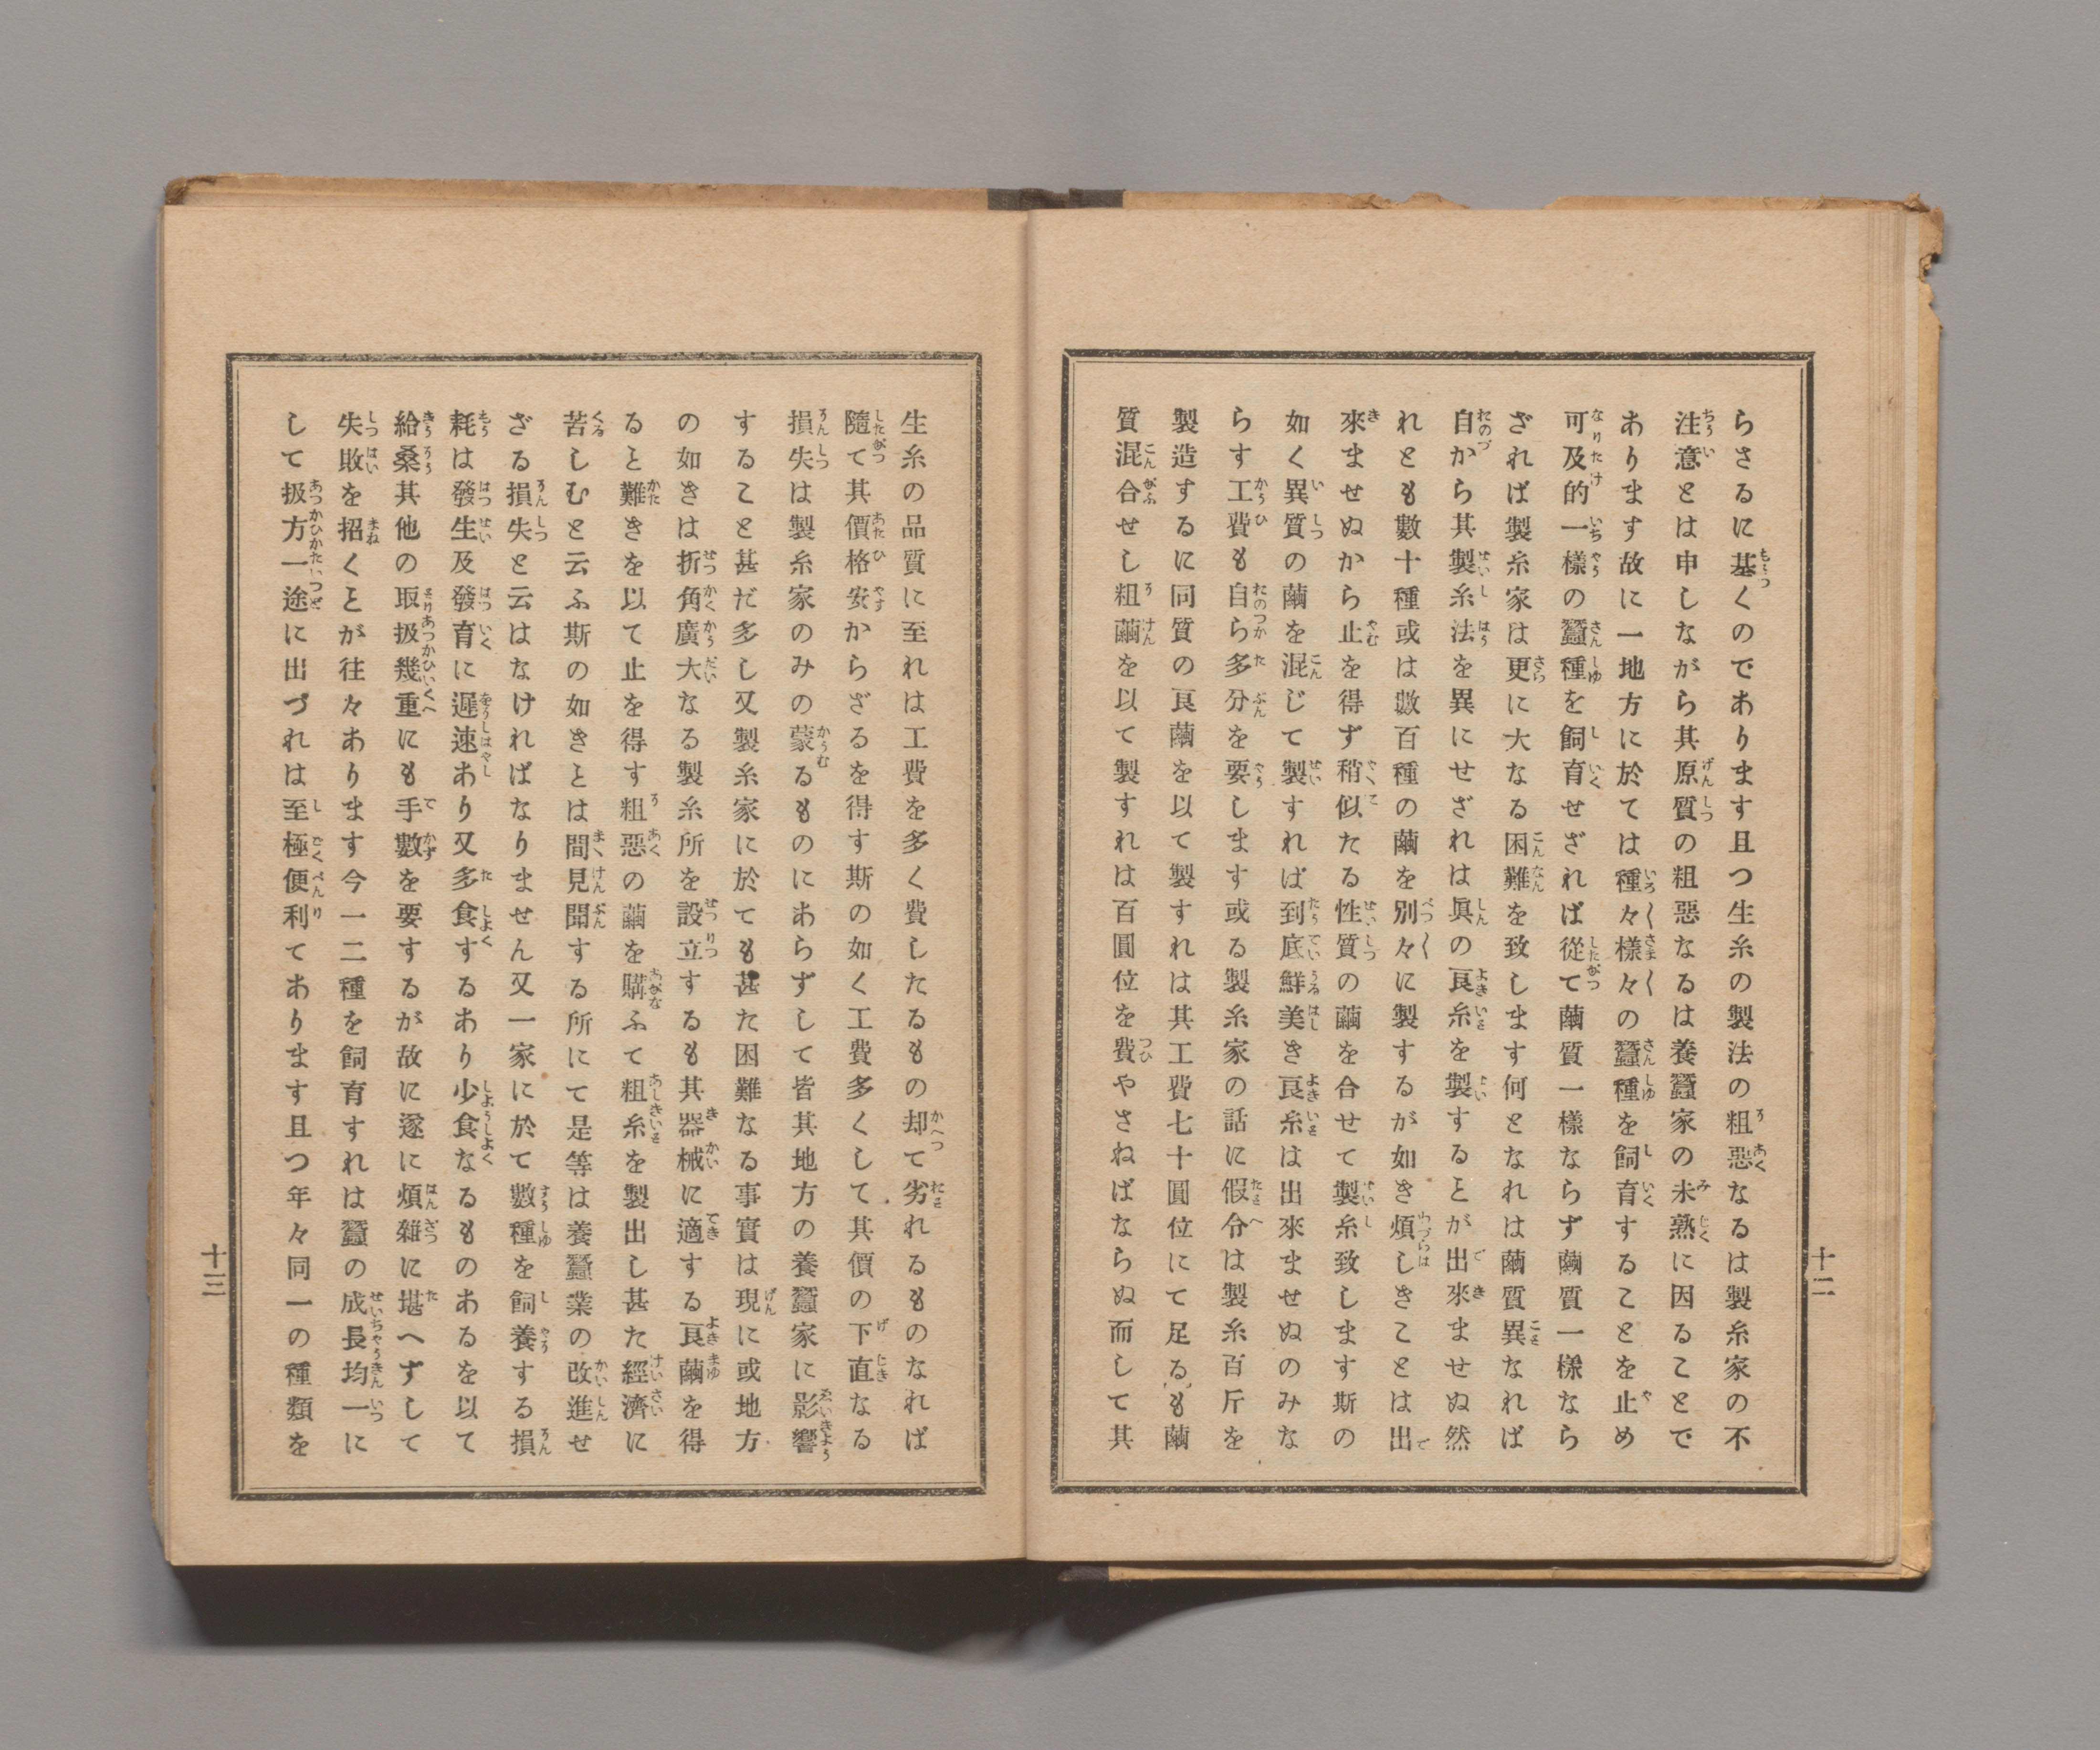 らさるに基くのであります且つ生糸の製法の粗惡なるは製糸家の不
注意とは申しながら其原質の粗惡なるは養蠶家の未熟に因ることで
あります故に一地方に於ては種々樣々の蠶種を飼育することを止め
可及的一樣の蠶種を飼育せざれば從て繭質一樣ならず繭質一樣なら
ざれば製糸家は更に大なる困難を致します何となれは繭質異なれば
自から其製糸法を異にせざれは眞の良糸を製することが出來ませぬ然
れとも數十種或は數百種の繭を別々に製するが如き煩しきことは出
來ませぬから止を得ず稍似たる性質の繭を合せて製糸致します斯の
如く異質の繭を混じて製すれば到底鮮美き良糸は出來ませぬのみな
らす工費も自ら多分を要します或る製糸家の話に假令は製糸百斤を
製造するに同質の良繭を以て製すれは其工費七十圓位にて足るも繭
質混合せし粗繭を以て製すれは百圓位を費やさねばならぬ而して其
十二
生糸の品質に至れは工費を多く費したるもの却て劣れるものなれば
隨て其價格安からざるを得す斯の如く工費多くして其價の下直なる
損失は製糸家のみの蒙るものにあらずして皆其地方の養蠶家に影響
すること甚だ多し又製糸家に於ても甚た困難なる事實は現に或地方
の如きは折角廣大なる製糸所を設立するも其器械に適する良繭を得
ること難きを以て止を得す粗惡の繭を購ふて粗糸を製出し甚た經濟に
苦しむと云ふ斯の如きことは間見聞する所にて是等は養蠶業の改進せ
ざる損失と云はなければなりません又一家に於て數種を飼養する損
耗は發生及發育に遲速あり又多食するあり少食なるものあるを以て
給桑其他の取扱幾重にも手數を要するが故に遂に煩雜に堪へずして
失敗を招くことが往々あります今一二種を飼育すれは蠶の成長均一に
して扱方一途に出づれは至極便利てあります且つ年々同一の種類を
十三